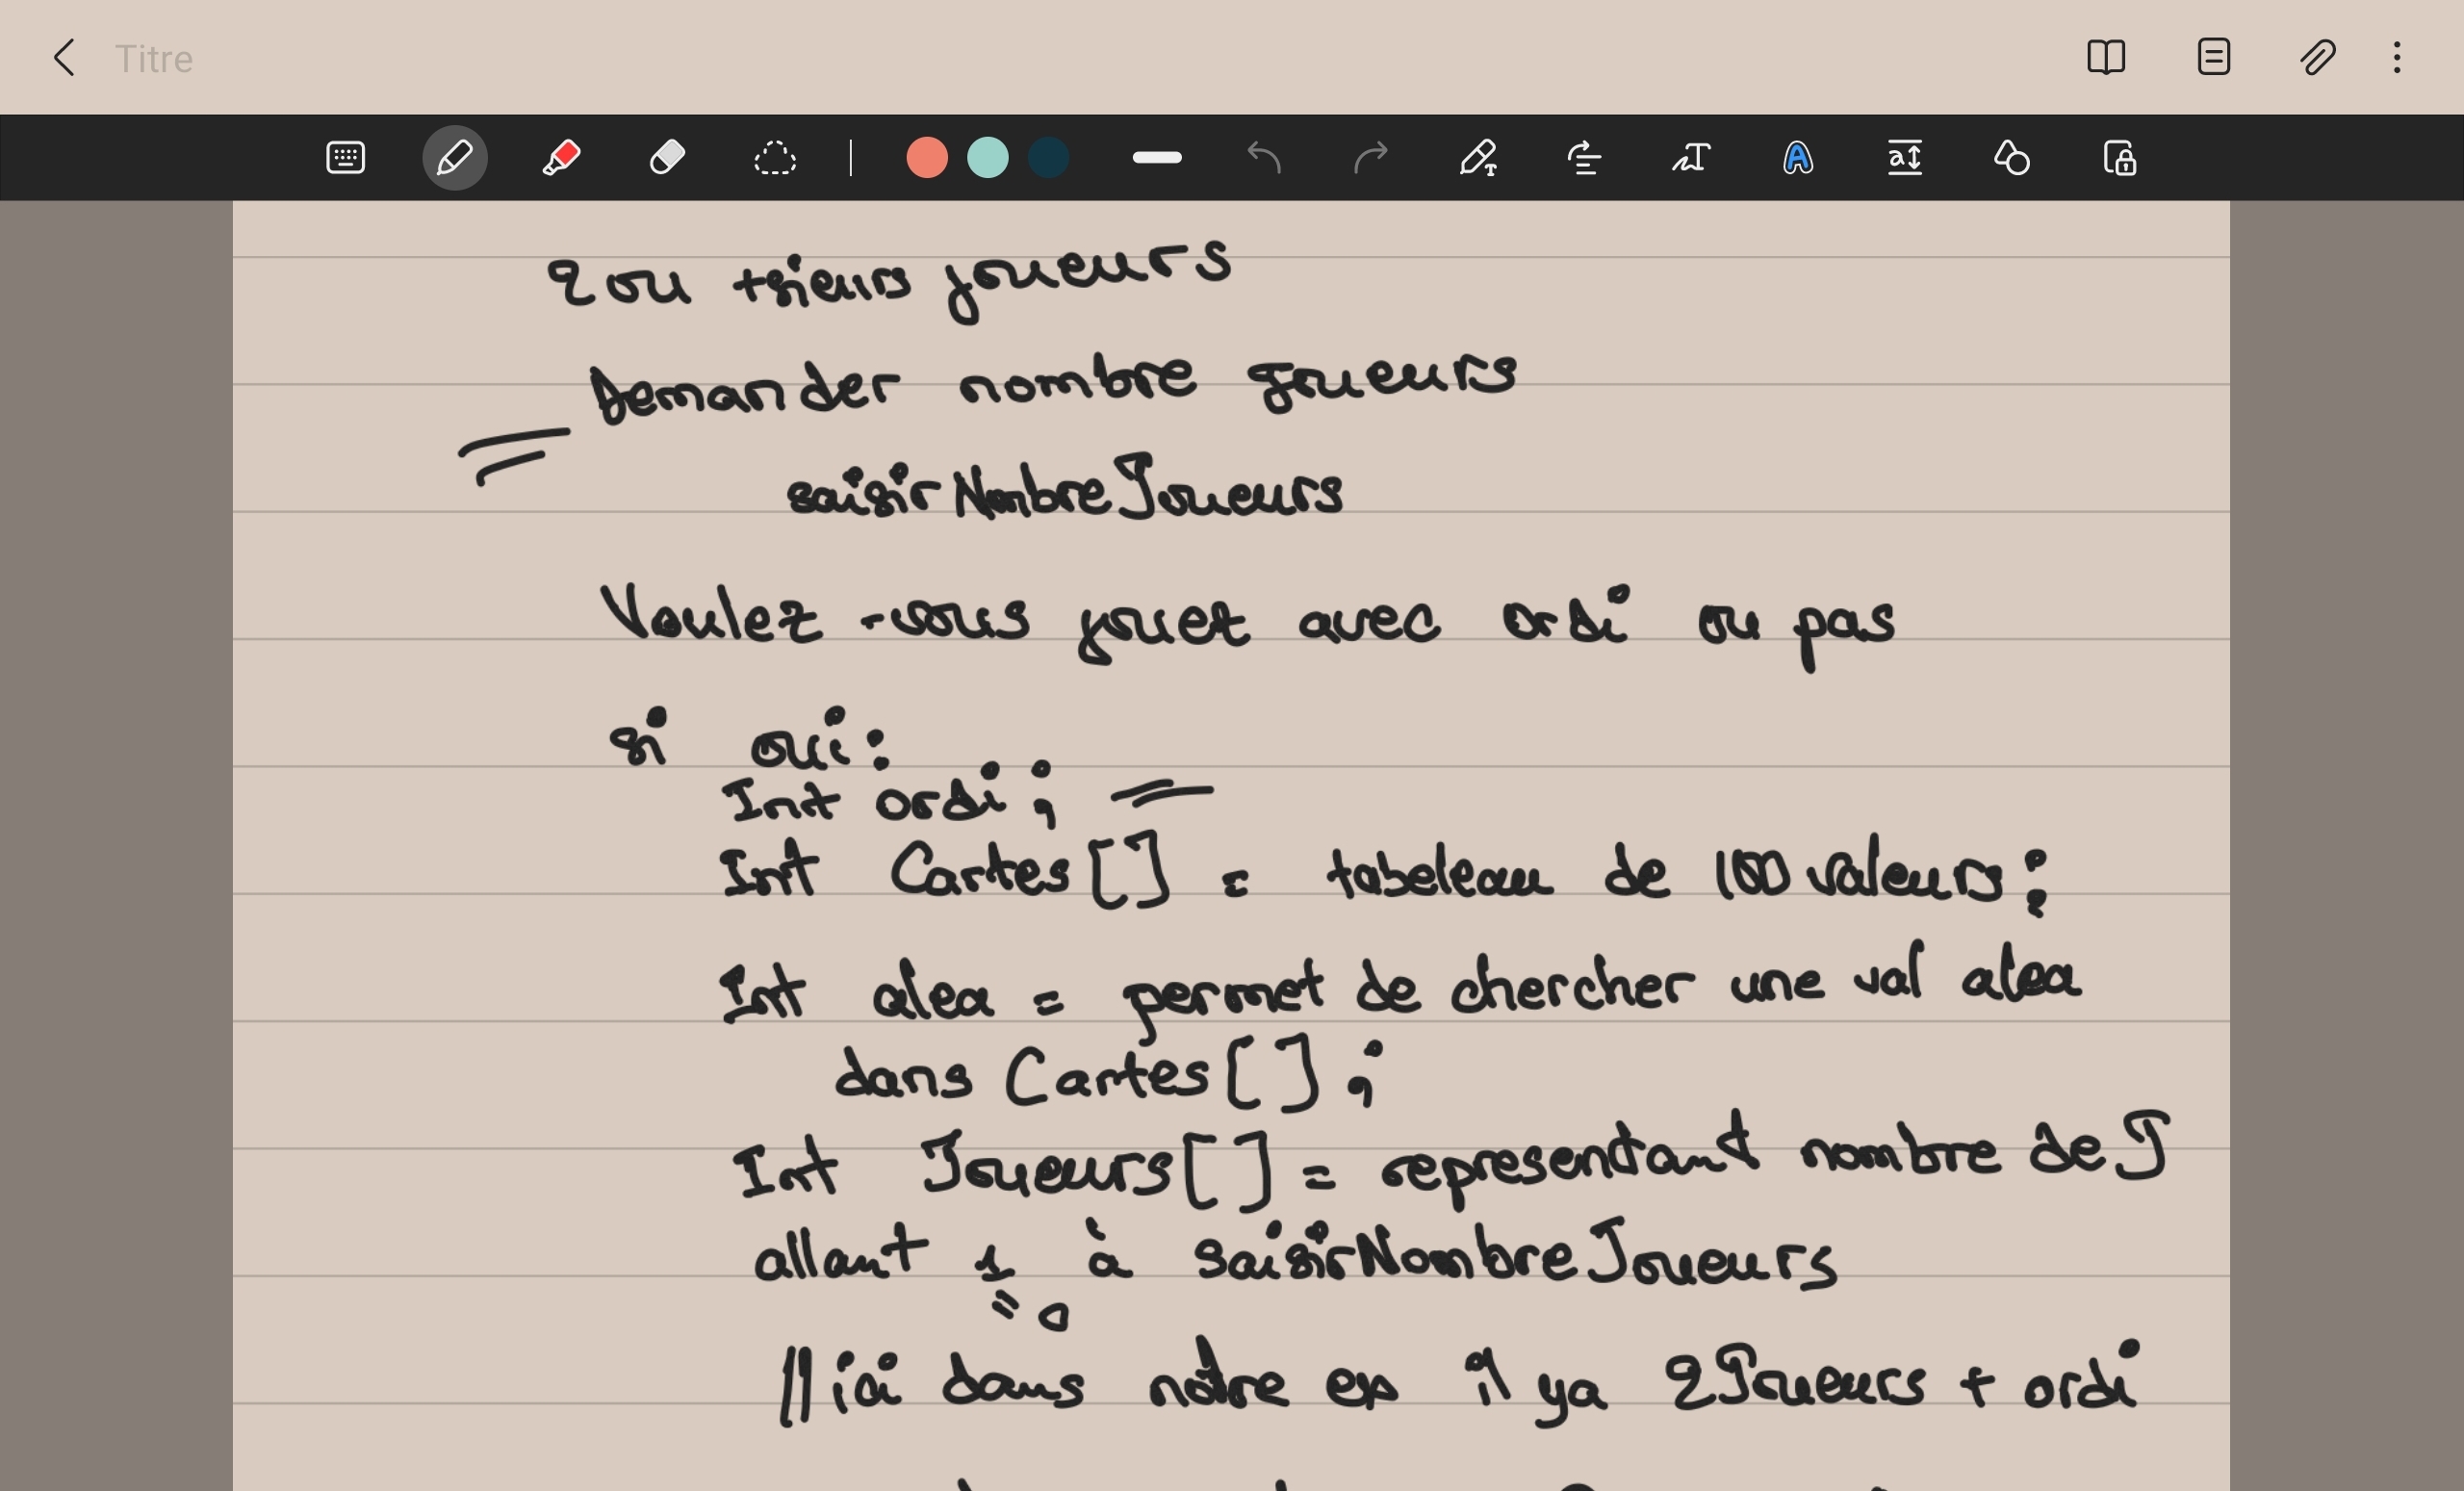 Titre
2 ou tsieurs joueurs
Demander nombre joueurs
saisirNombreJoueurs
Voulez-vous jouet avec ordi ou pas
si oui:
Int ordi;
Int Cartes[] = tabeleau de 100 valeurs;
Int alea = permet de chercher une val alea
dans Cartes[];
Int Joueurs[] = representant nombre de J
allant 1 à saisirNombreJoueurs
= 0
// ici dans notre ex il ya 2Joueurs + ordi